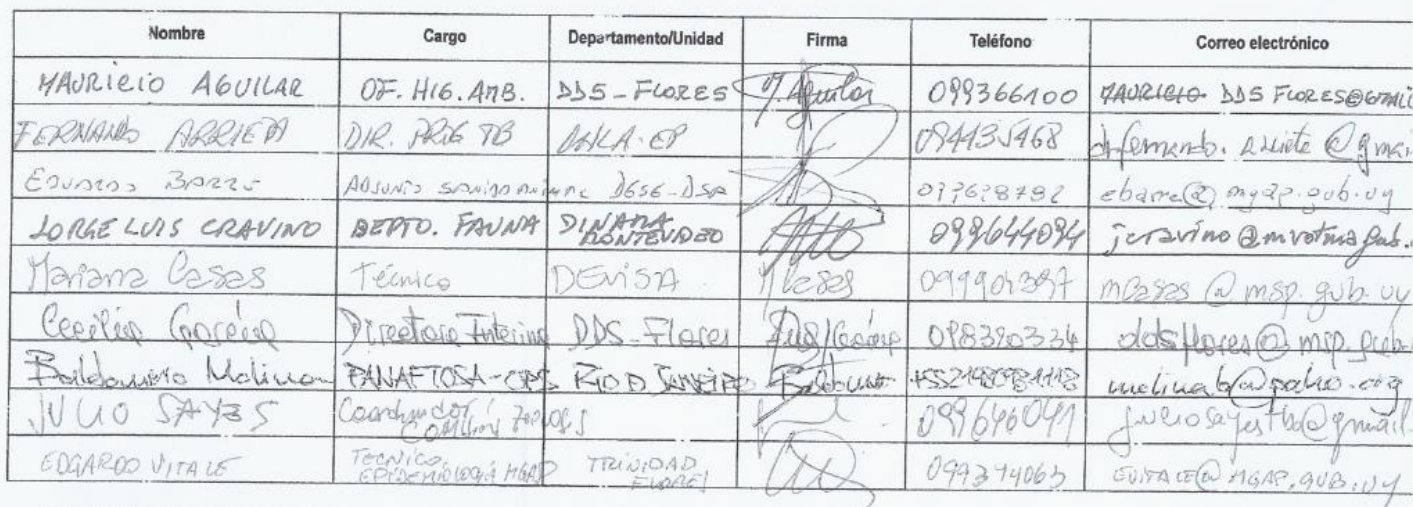 Nombre Cargo Departamento/Unidad Firma Teléfono Correo electrónico
MAURICIO AGUILAR OF. HIG. AMB. DDS-FLORES M. Aguilar 099366100 MAURICIO DDS FLORES@GMAIL
FERNANDO ARRIETA DIR. PROG TB 094435468
EDUARDO BARRE ADJUNTO DGSG-DSA ebarre@mgap.gub.uy
JORGE LUIS CRAVINO DEPTO. FAUNA DINAMA MONTEVIDEO 099644094 jcravino@mvotma.gub.
Mariana Casas Técnico DEVISA MCasas mcasas@msp.gub.uy
Cecilia García Directora Interina DDS-Flores 098390334 ddsflores@msp.gub.
Baldomero Molina PANAFTOSA-OPS RIO D JANEIRO molinab@paho.org
JULIO SAYES Coordinador 099646041 juliosayestb@gmail.
EDGARDO VITALE TECNICO EPIDEMIOLOGÍA MGAP TRINIDAD FLORES 099394063 EVITALE@MGAP.GUB.UY